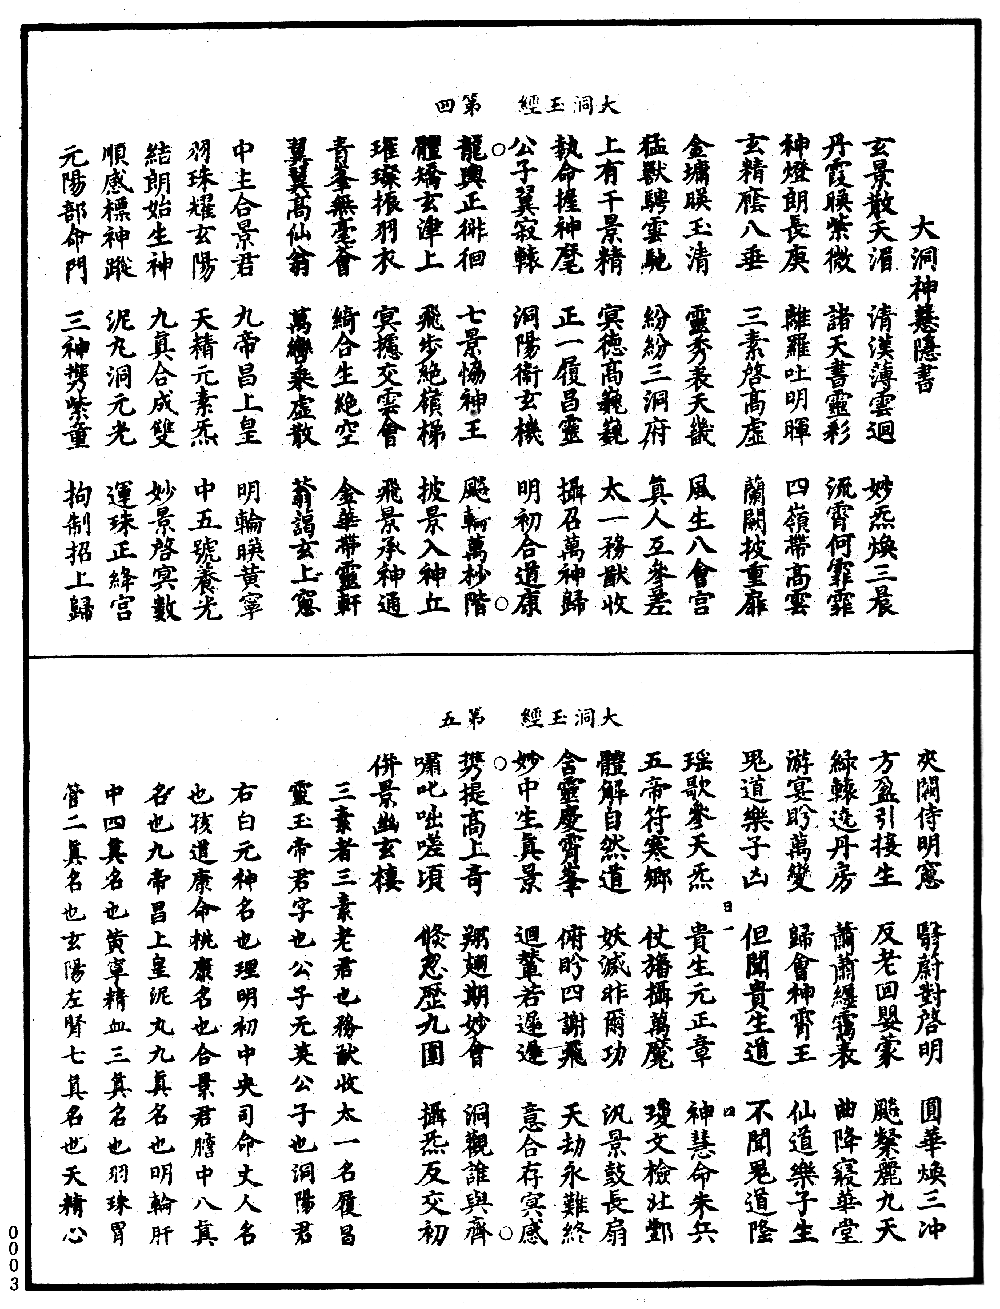 大洞玉經　第四
大洞神慧隱書
玄景散天湄　清漢薄雲迴　妙炁煥三晨
丹霞暎紫微　諸天書靈彩　流霄何霏霏
神燈朗長庚　離羅吐明暉　四嶺帶高雲
玄精廕八垂　三素啓高虛　蘭闕披重扉
金墉暎玉清　靈秀表天畿　風生八會宮
猛獸騁雲馳　紛紛三洞府　真人互參差
上有千景精　冥德高巍巍　太一務猷收
執命握神麾　正一履昌靈　攝召萬神歸
公子翼寂轅　洞陽衛玄機　明初合道康
○龍輿正徘徊　七景協神王　飈輪萬杪階○
體矯玄津上　飛步絶嶺梯　披景入神丘
璀璨振羽衣　冥攄交雲會　飛景承神通
青峯無毫薈　綺合生絶空　金華帶靈軒
翼翼高仙翁　萬轡乘虛散　蓊藹玄上窻
中主合景君　九帝昌上皇　明輪暎黃寧
羽珠耀玄陽　天精元素炁　中五號養光
結朗始生神　九真合成雙　妙景啓冥數
順感標神蹤　泥丸洞元光　運珠正絳宮
元陽部命門　三神㩦紫童　拘制招上歸
大洞玉經　第五
夾閞侍明窻　翳蔚對啓明　圓華煥三沖
方盈引接生　反老回嬰蒙　飈粲麗九天
綠轅造丹房　蕭蕭纒霱表　曲降寢華堂
游宴盻萬變　歸會神霄王　仙道樂子生
鬼道樂子凶　但聞貴生道　不聞鬼道隆
曰　一　曰
瑶歌參天炁　貴生元正章　神慧命朱兵
五帝符寒鄉　杖旛攝萬魔　瓊文檢社酆
體解自然道　妖滅非爾功　汎景鼓長扇
含靈慶霄峯　俯盻四謝飛　天劫永難終
妙中生真景　迴輦若遲遲　意合存冥感
○㩦提高上奇　翔翅期妙會　洞觀誰與齊○
嘯叱咄嗟頃　倏忽歷九圍　攝炁反交初
併景幽玄樓
三素者三素老君也務猷收太一名履昌
靈玉帝君字也公子无英公子也洞陽君
右白元神名也理明初中央司命丈人名
也孩道康命桃康名也合景君膽中八真
名也九帝昌上皇泥丸九真名也明輪肝
中四真名也黃寧精血三真名也羽珠胃
管二真名也玄陽左腎七真名也天精心
0003